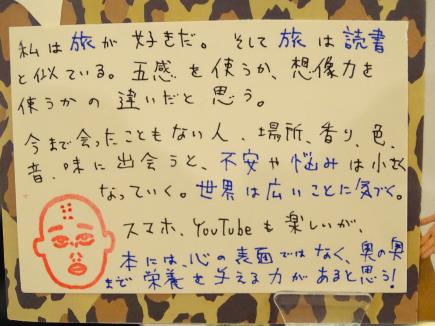 私は旅が好きだ。そして旅は読書
と似ている。五感を使うか、想像力を
使うかの違いだと思う。
今まで会ったこともない人、場所、香り、色、
音、味に出会うと、不安や悩みは小さく
なっていく。世界は広いことに気づく。
スマホ、YouTubeも楽しいが、
本には、心の表面ではなく、奥の奥
まで栄養を与える力があると思う!